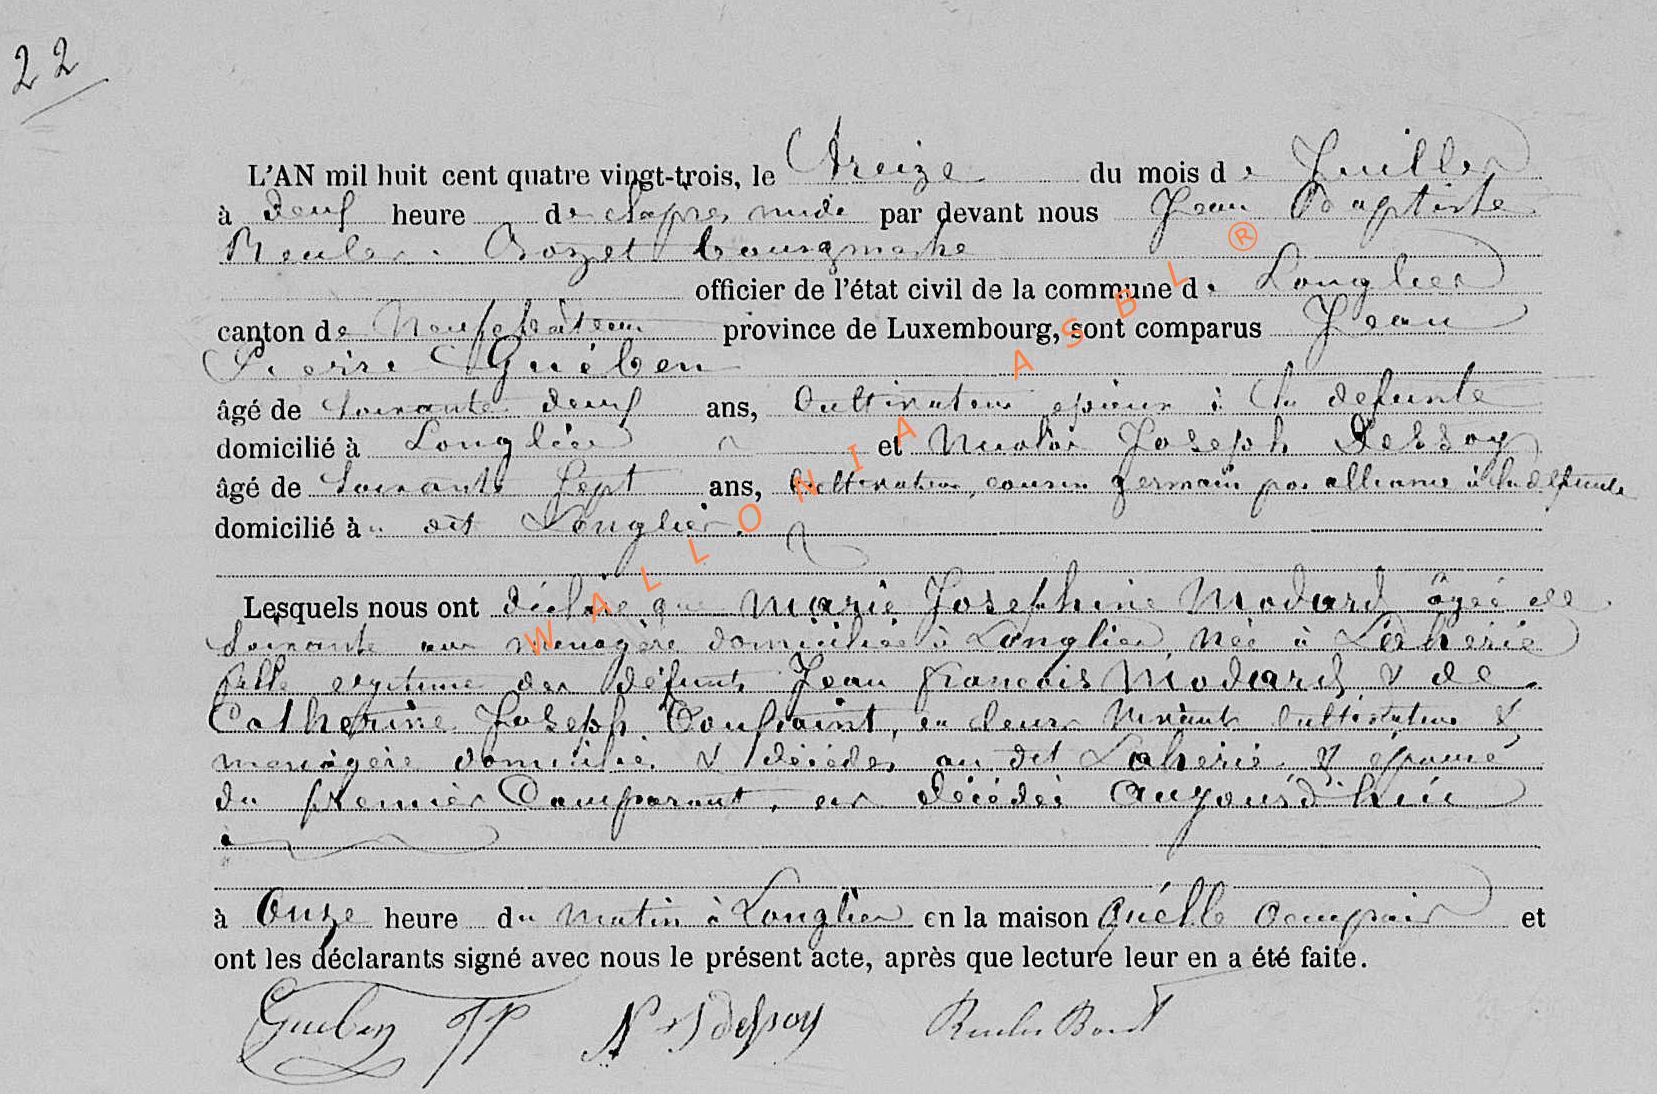 22
L'AN mil huit cent quatre vingt-trois, le treize du mois de Juillet
à deux heure de l'après midi par devant nous Jean Baptiste
Reuler Bozet bourgmestre
officier de l'état civil de la commune de Longlier
canton de Neufchâteau province de Luxembourg, sont comparus Jean
Pierre Guében
âgé de soixante deux ans, Cultivateur époux à la défunte
domicilié à Longlier et Nicolas Joseph Dessoy
âgé de soixante sept ans, Cultivateur, cousin germain par alliance à la défunte
domicilié à dit Longlier.
Lesquels nous ont déclaré que Marie Josephine Modard âgée de
soixante ans ménagère domiciliée à Longlier, née à Laherie
fille légitime des défunts Jean François Modard & de
Catherine Joseph Toussaint, en leurs vivants Cultivateur &
ménagère domiciliés & décédés au dit Laherie & épouse
du premier Comparant, est décédée aujourd'hui
à Onze heure du matin à Longlier en la maison qu'elle occupait et
ont les déclarants signé avec nous le présent acte, après que lecture leur en a été faite.
Gueben JP N J Dessoy Reuler Bozet
WALLONIA ASBL ®